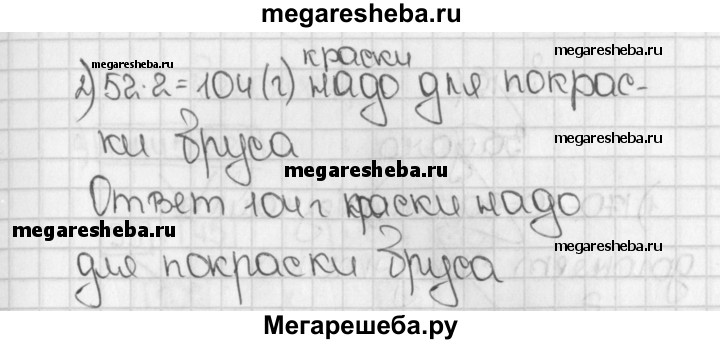 megaresheba.ru
краски
megaresheba.ru
megaresheba.ru
2) 52·2=104(г) надо для покрас-
ки бруса
megaresheba.ru
megaresheba.ru
Ответ 104 г краски надо
megaresheba.ru
megaresheba.ru
для покраски бруса
Мегарешеба.ру